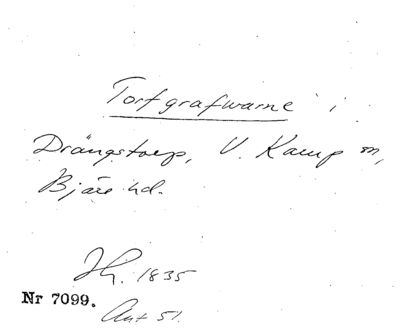 Torfgrafwarne i
Drängstorp, V. Karup sn,
Bjäre hd.
Ih. 1835
Nr 7099.
Ant 51.